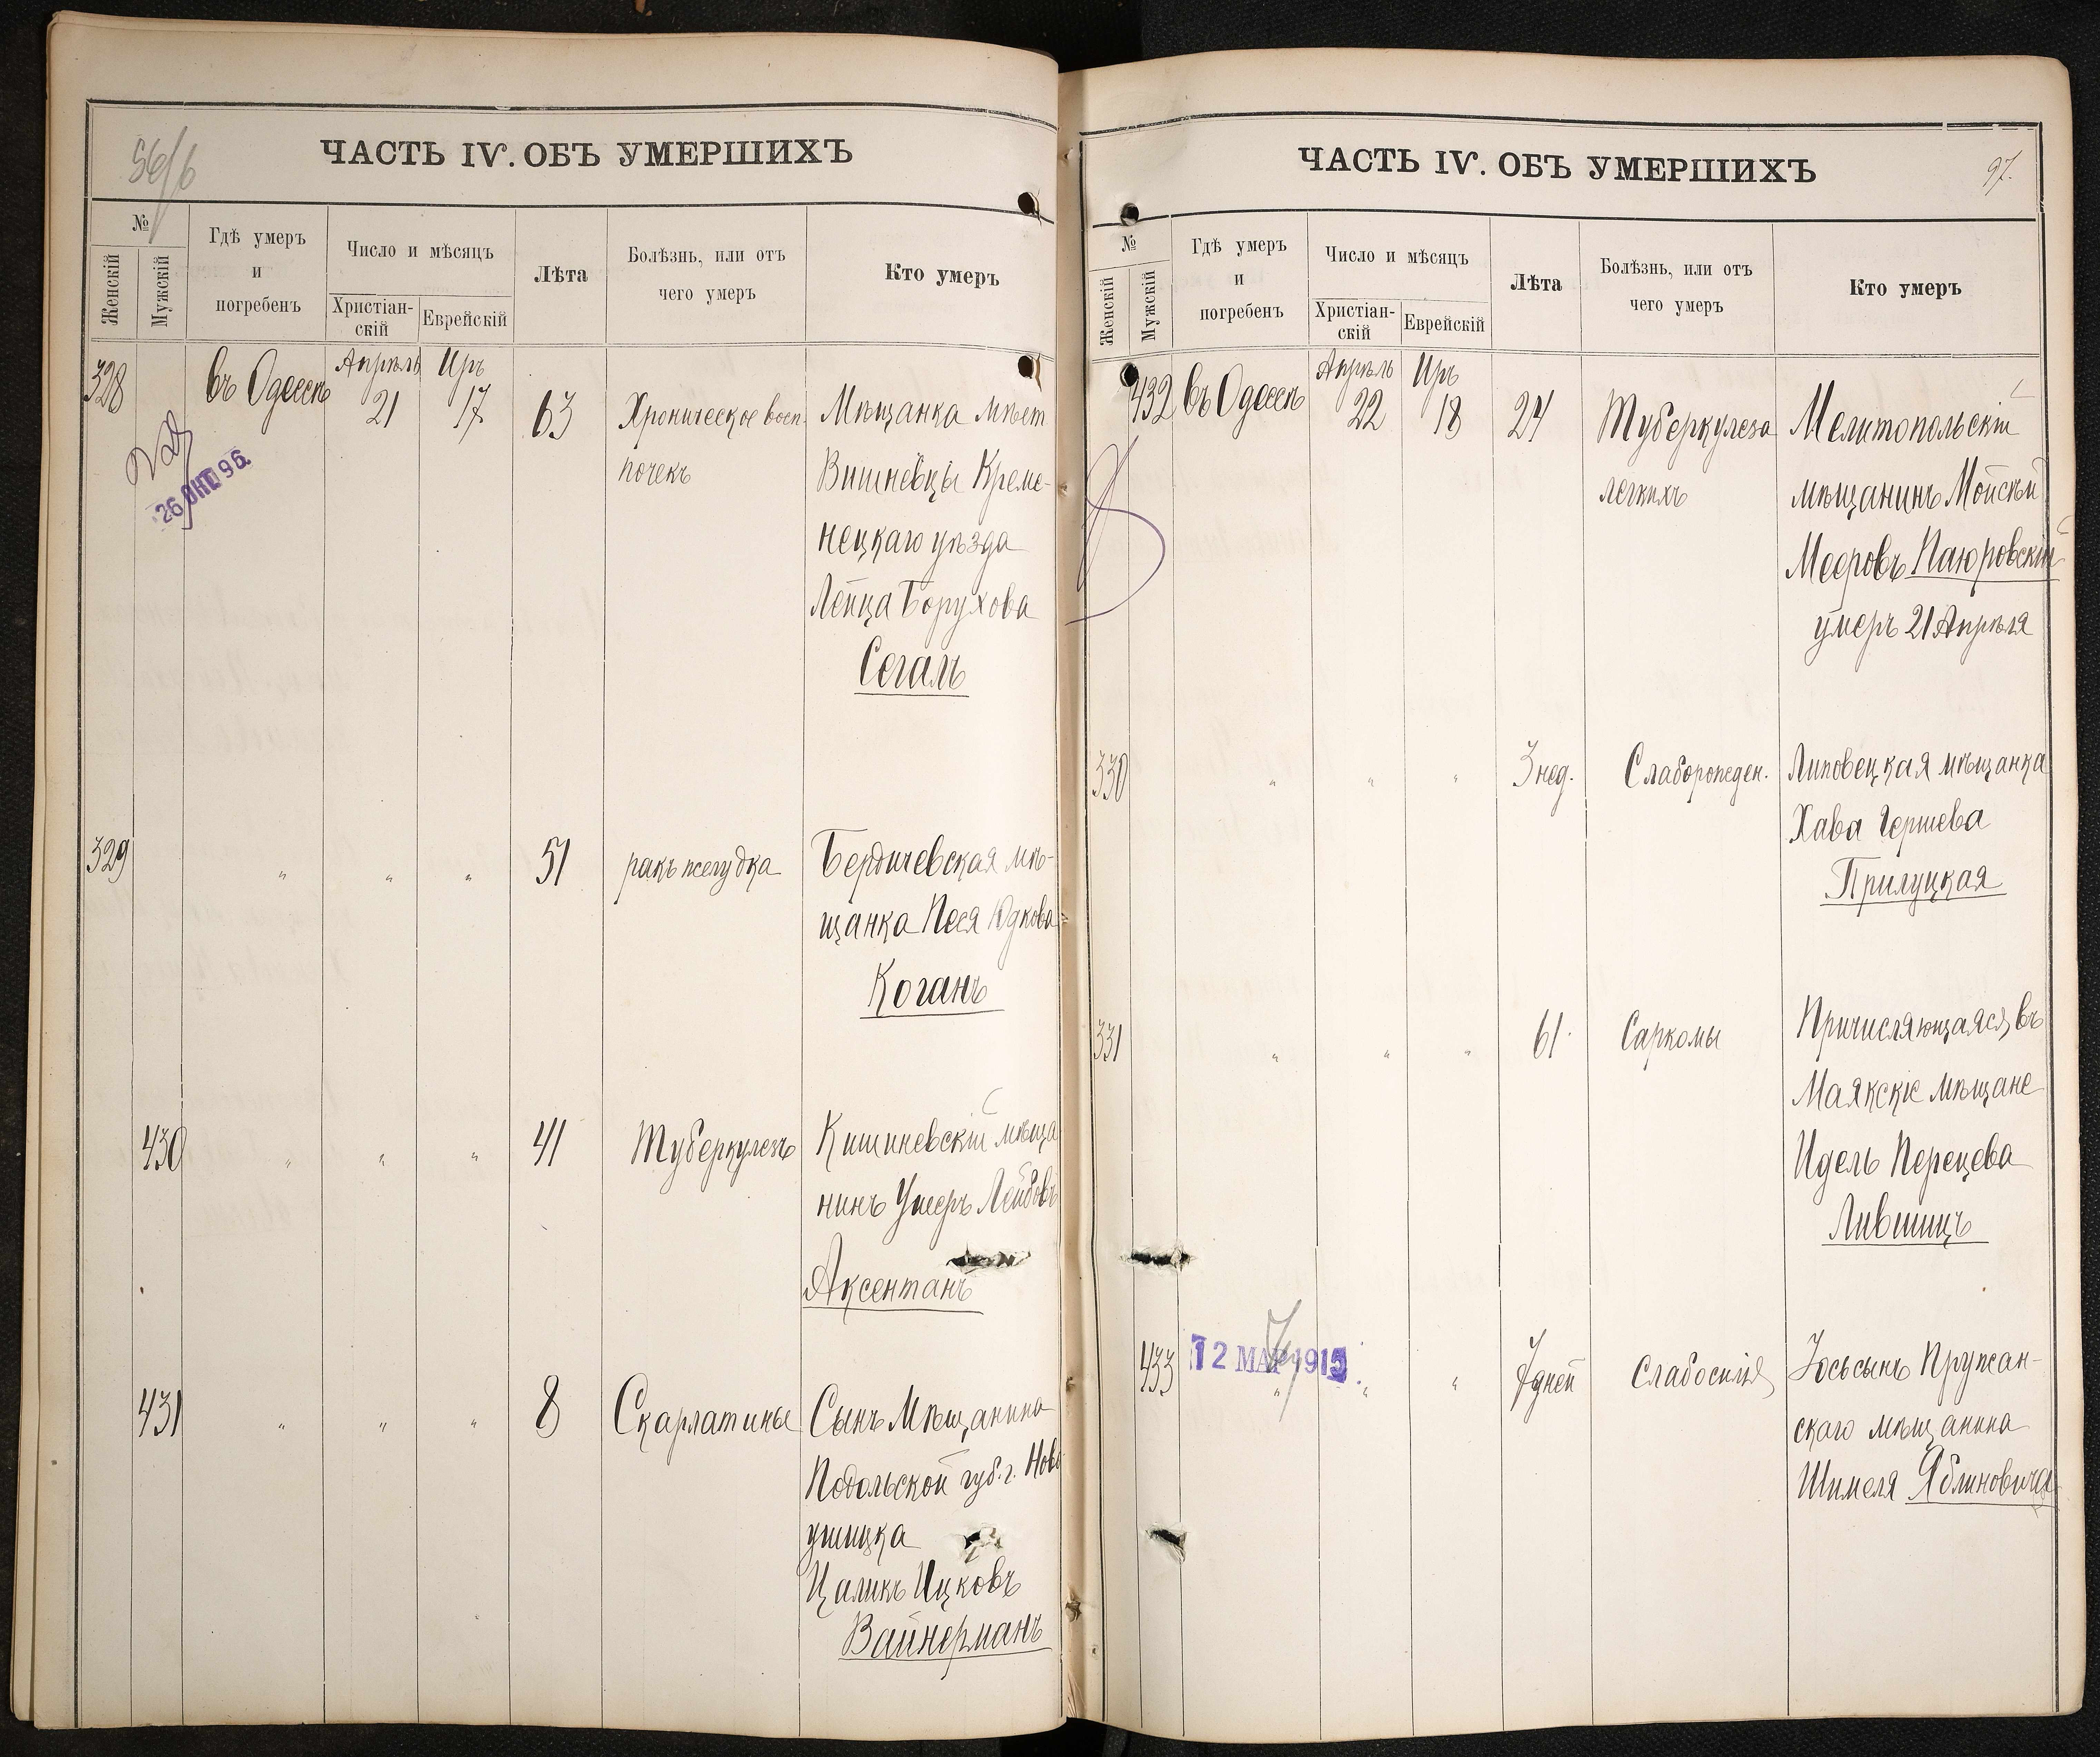 56/6
ЧАСТЬ IV. ОБЪ УМЕРШИХЪ
№
Женскій
Мужскій
Гдѣ умеръ
и
погребенъ
Число и мѣсяцъ
Христіан-
скій
Еврейскій
Лѣта
Болѣзнь, или отъ
чего умеръ
Кто умеръ
328
въ Одессѣ
Апрѣль
21
Иръ
17
63
Хроническое восп.
почекъ
Мѣщанка мѣст
Вишневцы Креме-
нецкаго уѣзда
Лейца Борухова
Сегаль
26 ОКТ 96
329
" " "
51
ракъ желудка
Бердичевская мѣ-
щанка Песя Юдкова
Коганъ
430
" " "
41
Туберкулезъ
Кишиневскій мѣща
нинъ Ушеръ Лейбовъ
Аксентанъ
431
" " "
8
Скарлатины
Сынъ Мѣщанина
Подольской губ. г. Ново
ушицка
Цаликъ Ицковъ
Вайнерманъ
ЧАСТЬ IV. ОБЪ УМЕРШИХЪ
97.
№
Женскій
Мужскій
Гдѣ умеръ
и
погребенъ
Число и мѣсяцъ
Христіан-
скій
Еврейскій
Лѣта
Болѣзнь, или отъ
чего умеръ
Кто умеръ
432
въ Одессѣ
Апрѣль
22
Иръ
18
24
Туберкулеза
легкихъ
Мелитопольскій
мѣщанинъ Мойсѣй
Мееровъ Паюровскій
умеръ 21 Апрѣля
330
" " "
3 нед.
Слаборожден.
Липовецкая мѣщанка
Хава Гершева
Прилуцкая
331
" " "
61
Саркомы
Причисляющаяся въ
Маякскіе мѣщане
Идель Перецева
Лившицъ
433
12 МАР 1915
" " "
7 дней
Слабосилія
Юсь сынъ Пружан-
скаго мѣщанина
Шимеля Яблиновича